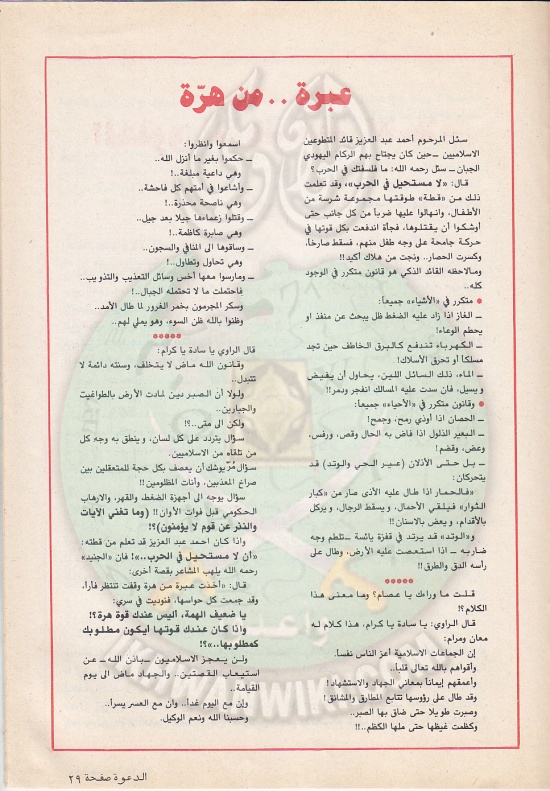 عبرة .. من هرّة
سئل المرحوم أحمد عبد العزيز قائد المتطوعين
الاسلاميين ــ حين كان يجتاح بهم الركام اليهودي
الجبان ــ سئل رحمه الله: ما فلسفتك في الحرب؟
قال: «لا مستحيل في الحرب»، وقد تعلمت
ذلك من «قطة» طوقتها مجموعة شرسة من
الأطفال، وانهالوا عليها ضرباً من كل جانب حتى
أوشكوا أن يقتلوها، فجأة اندفعت بكل قوتها في
حركة جامحة على وجه طفل منهم، فسقط صارخاً،
وكسرت الحصار.. ونجت من هلاك أكيد!!
ومالاحظه القائد الذكي هو قانون متكرر في الوجود
كله..
● متكرر في «الأشياء» جميعاً:
ــ الغاز اذا زاد عليه الضغط ظل يبحث عن منفذ او
يحطم الوعاء!
ــ الكهرباء تندفع كالبرق الخاطف حين تجد
مسلكاً أو تحرق الأسلاك!
ــ الماء، ذلك السائل اللين، يحاول أن يفيض
ويسيل، فان سدت عليه المسالك انفجر ودمر!!
● وقانون متكرر في «الأحياء» جميعاً:
ــ الحصان اذا أوذي رمح، وجمح!
ــ البعير الذلول اذا فاض به الحال وقص، ورفس،
وعض، وقضم!
ــ بل حتى الأذلان (عير الحي والوتد) قد
يتحركان:
«فالحمار اذا طال عليه الأذى صار من «كبار
الثوار» فيلقي الأحمال، ويسقط الرجال، ويركل
بالأقدام، ويعض بالاسنان!!
و«الوتد» قد يرتد في قفزة يائسة ــ تلطم وجه
ضاربه ــ اذا استعصت عليه الأرض، وطال على
رأسه الدق والطرق!!
●●●●●
قلت ما وراءك يا عصام؟ وما معنى هذا
الكلام؟!
قال الراوي: يا سادة يا كرام، هذا كلام له
معان ومرام:
إن الجماعات الاسلامية أعز الناس نفساً.
وأقواهم بالله تعالى قلباً..
وأعمقهم إيماناً بمعاني الجهاد والاستشهاد!
وقد طال على رؤوسها تتابع المطارق والمشانق!
وصبرت طويلا حتى ضاق بها الصبر..
وكظمت غيظها حتى ملها الكظم..!!
اسمعوا وانظروا:
ــ حكموا بغير ما أنزل الله..
وهي داعية مبلغة..!
ــ وأشاعوا في أمتهم كل فاحشة..
وهي ناصحة محذرة..!
ــ وقتلوا زعماءها جيلا بعد جيل..
وهي صابرة كاظمة..!
ــ وساقوها الى المنافي والسجون..
وهي تحاول وتطاول..!
ــ ومارسوا معها أخس وسائل التعذيب والتذويب..
فاحتملت ما لا تحتمله الجبال..!
وسكر المجرمون بخمر الغرور لما طال الأمد..
وظنوا بالله ظن السوء، وهو يملي لهم..
●●●●●
قال الراوي يا سادة يا كرام:
وقانون الله ماض لا يتخلف، وسنته دائمة لا
تتبدل..
ولولا أن الصبر دين لمادت الأرض بالطواغيت
والجبارين..
ولكن الى متى..؟!
سؤال يتردد على كل لسان، وينطق به وجه كل
من تلقاه من الاسلاميين.
سؤال مُرّ يوشك أن يعصف بكل حجة للمتعقلين بين
صراع المعذبين، وأنات المظلومين!!
سؤال يوجه الى أجهزة الضغط والقهر، والارهاب
الحكومي قبل فوات الأوان!! (وما تغني الآيات
والنذر عن قوم لا يؤمنون)؟!
واذا كان احمد عبد العزيز قد تعلم من قطته:
«أن لا مستحيل في الحرب..»! فان «الجنيد»
رحمه الله يلهب المشاعر بقصة أخرى:
قال: «أخذت عبرة من هرة وقفت تنتظر فأراً،
وقد جمعت كل حواسها، فنوديت في سري:
يا ضعيف الهمة، أليس عندك قوة هرة؟!
واذا كان عندك قوتها أيكون مطلوبك
كمطلوبها..»؟!
ولن يعجز الاسلاميون ــ باذن الله ــ عن
استيعاب القصتين.. والجهاد ماض الى يوم
القيامة..
وإن مع اليوم غداً.. وان مع العسر يسراً..
وحسبنا الله ونعم الوكيل.
الدعوة صفحة ٢٩